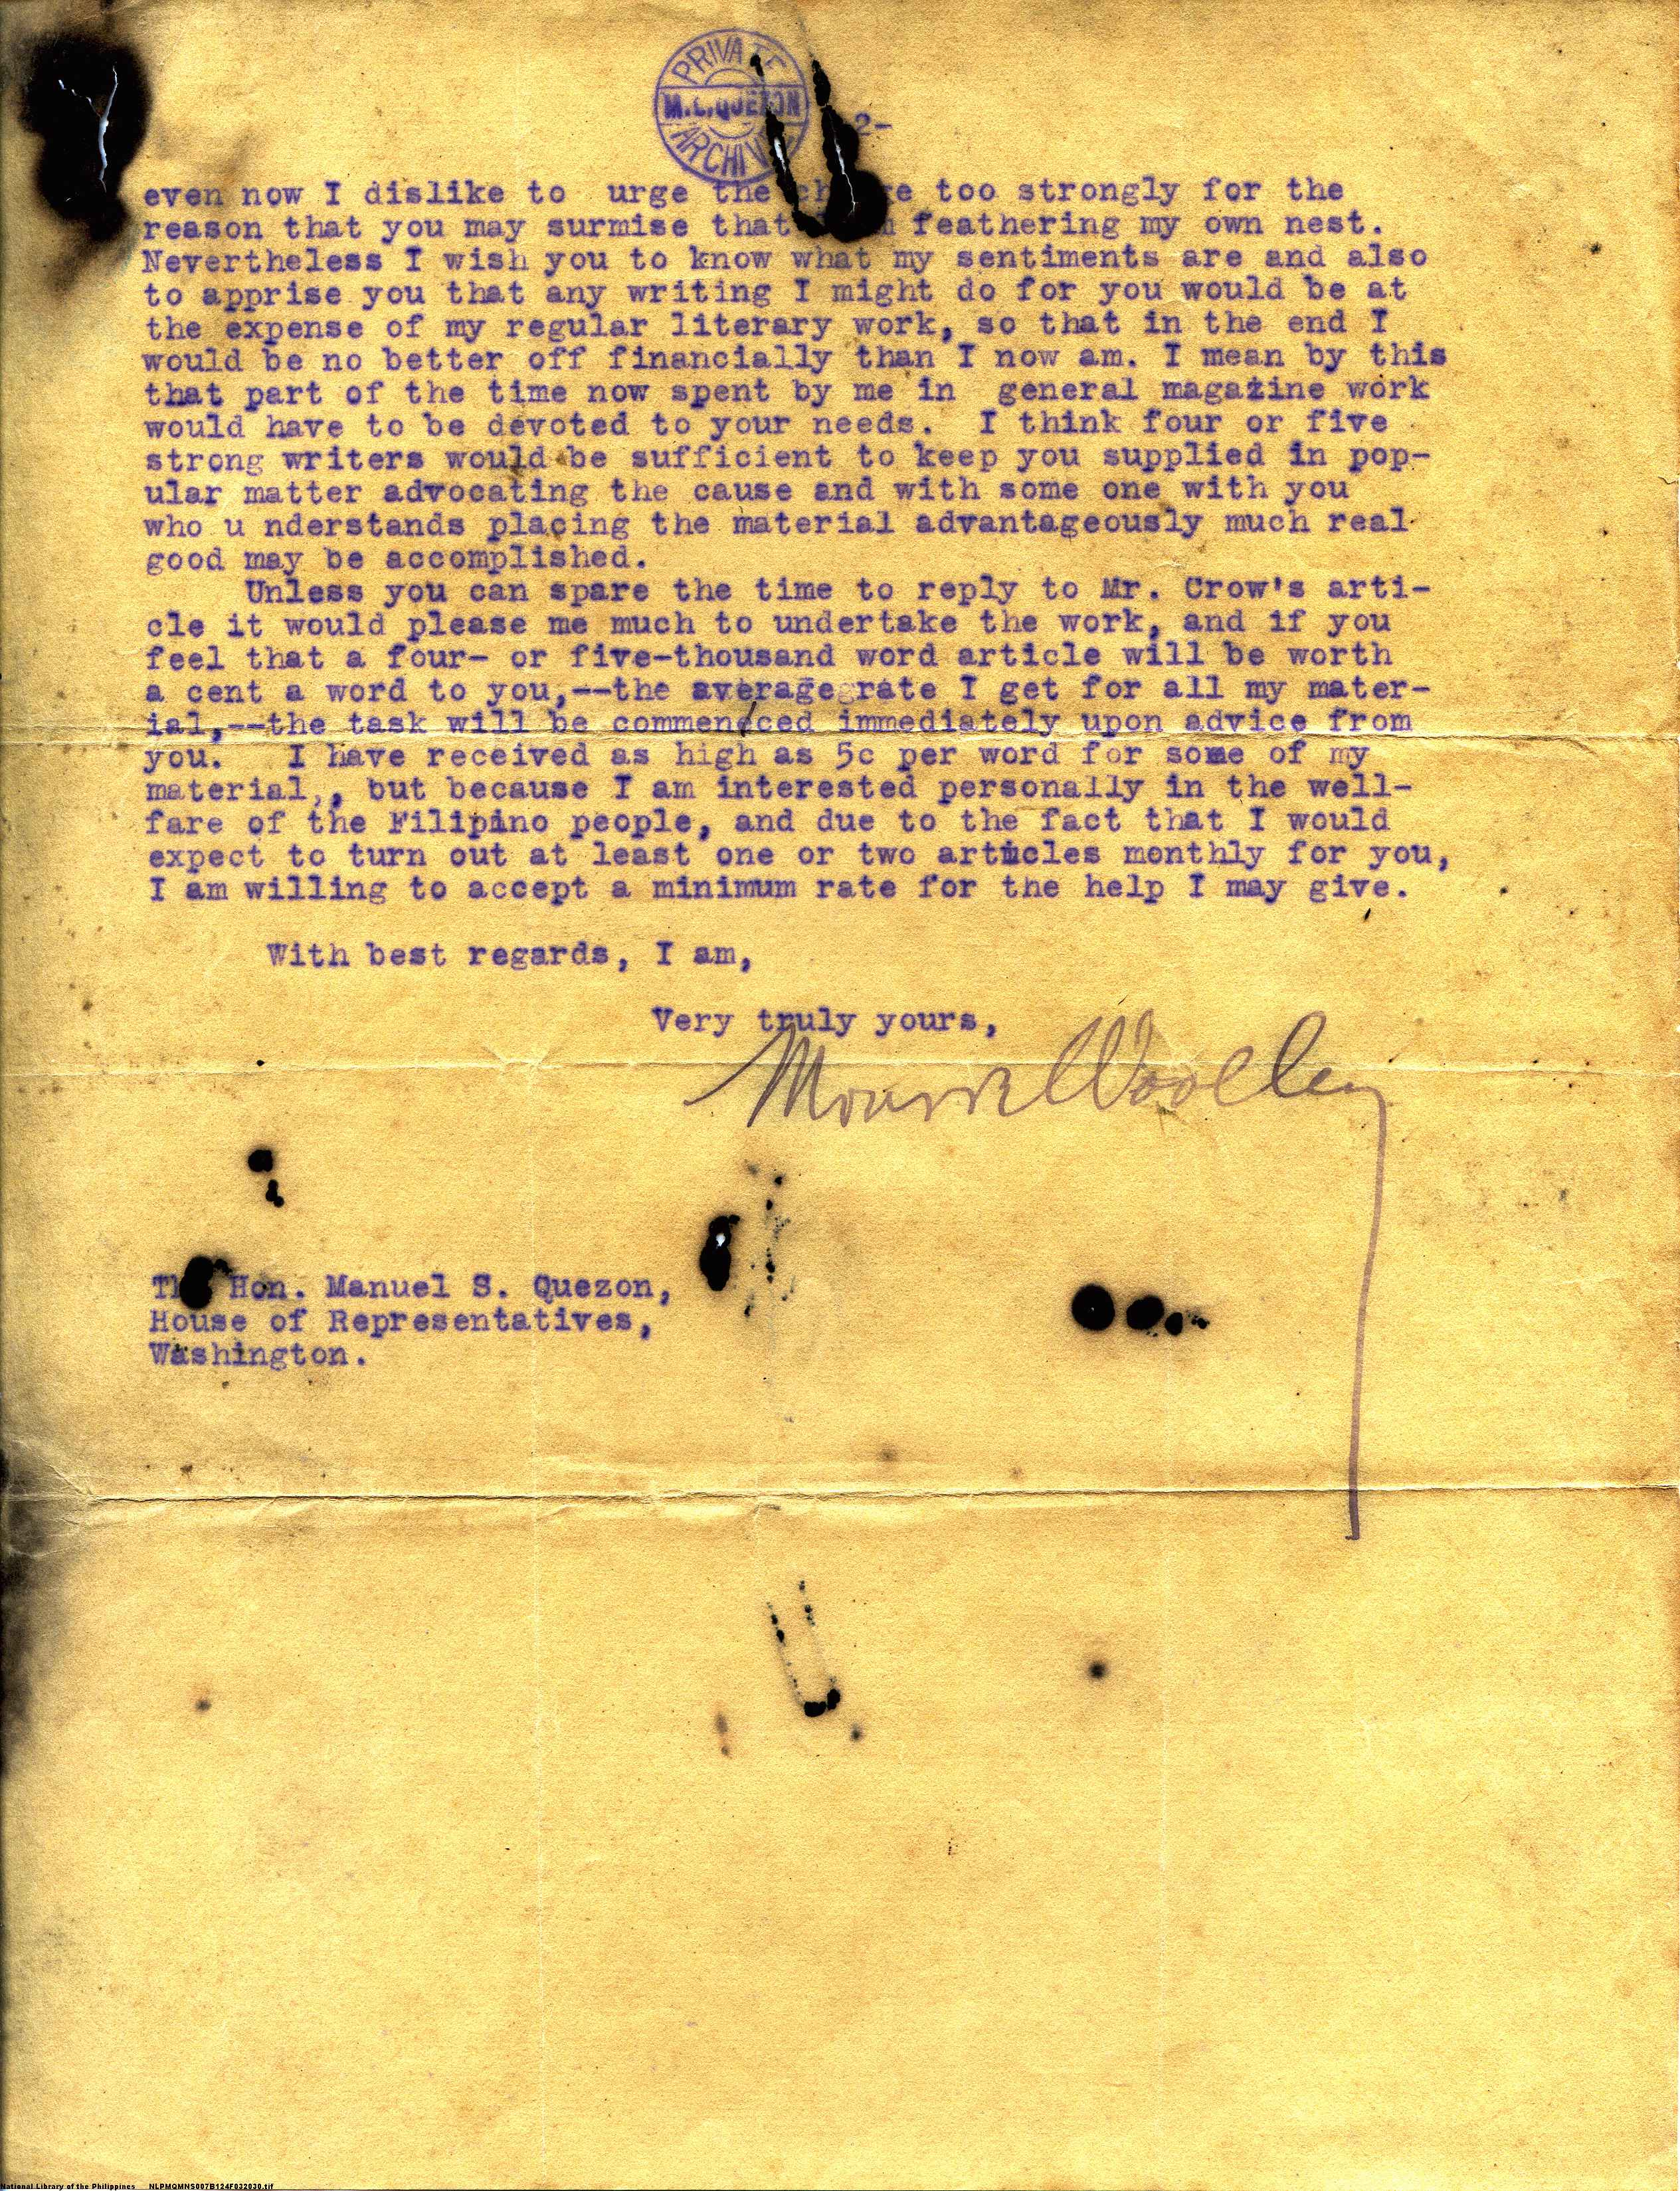 PRIVATE
M.L.QUEZON
ARCHIV
2-
even now I dislike to urge the too strongly for the
reason that you may surmise that feathering my own nest.
Nevertheless I wish you to know what my sentiments are and also
to apprise you that any writing I might do for you would be at
the expense of my regular literary work, so that in the end I
would be no better off financially than I now am. I mean by this
that part of the time now spent by me in general magazine work
would have to be devoted to your needs. I think four or five
strong writers would be sufficient to keep you supplied in pop-
ular matter advocating the cause and with some one with you
who u nderstands placing the material advantageously much real
good may be accomplished.
Unless you can spare the time to reply to Mr. Crow's arti-
cle it would please me much to undertake the work, and if you
feel that a four- or five-thousand word article will be worth
a cent a word to you,--the average rate I get for all my mater-
ial,--the task will be commen/ced immediately upon advice from
you. I have received as high as 5c per word for some of my
material,, but because I am interested personally in the well-
fare of the Filipino people, and due to the fact that I would
expect to turn out at least one or two articles monthly for you,
I am willing to accept a minimum rate for the help I may give.
With best regards, I am,
Very truly yours,
Monroe Woolley
The Hon. Manuel S. Quezon,
House of Representatives,
Washington.
National Library of the Philippines NLPMQMNS007B124F032030.tif